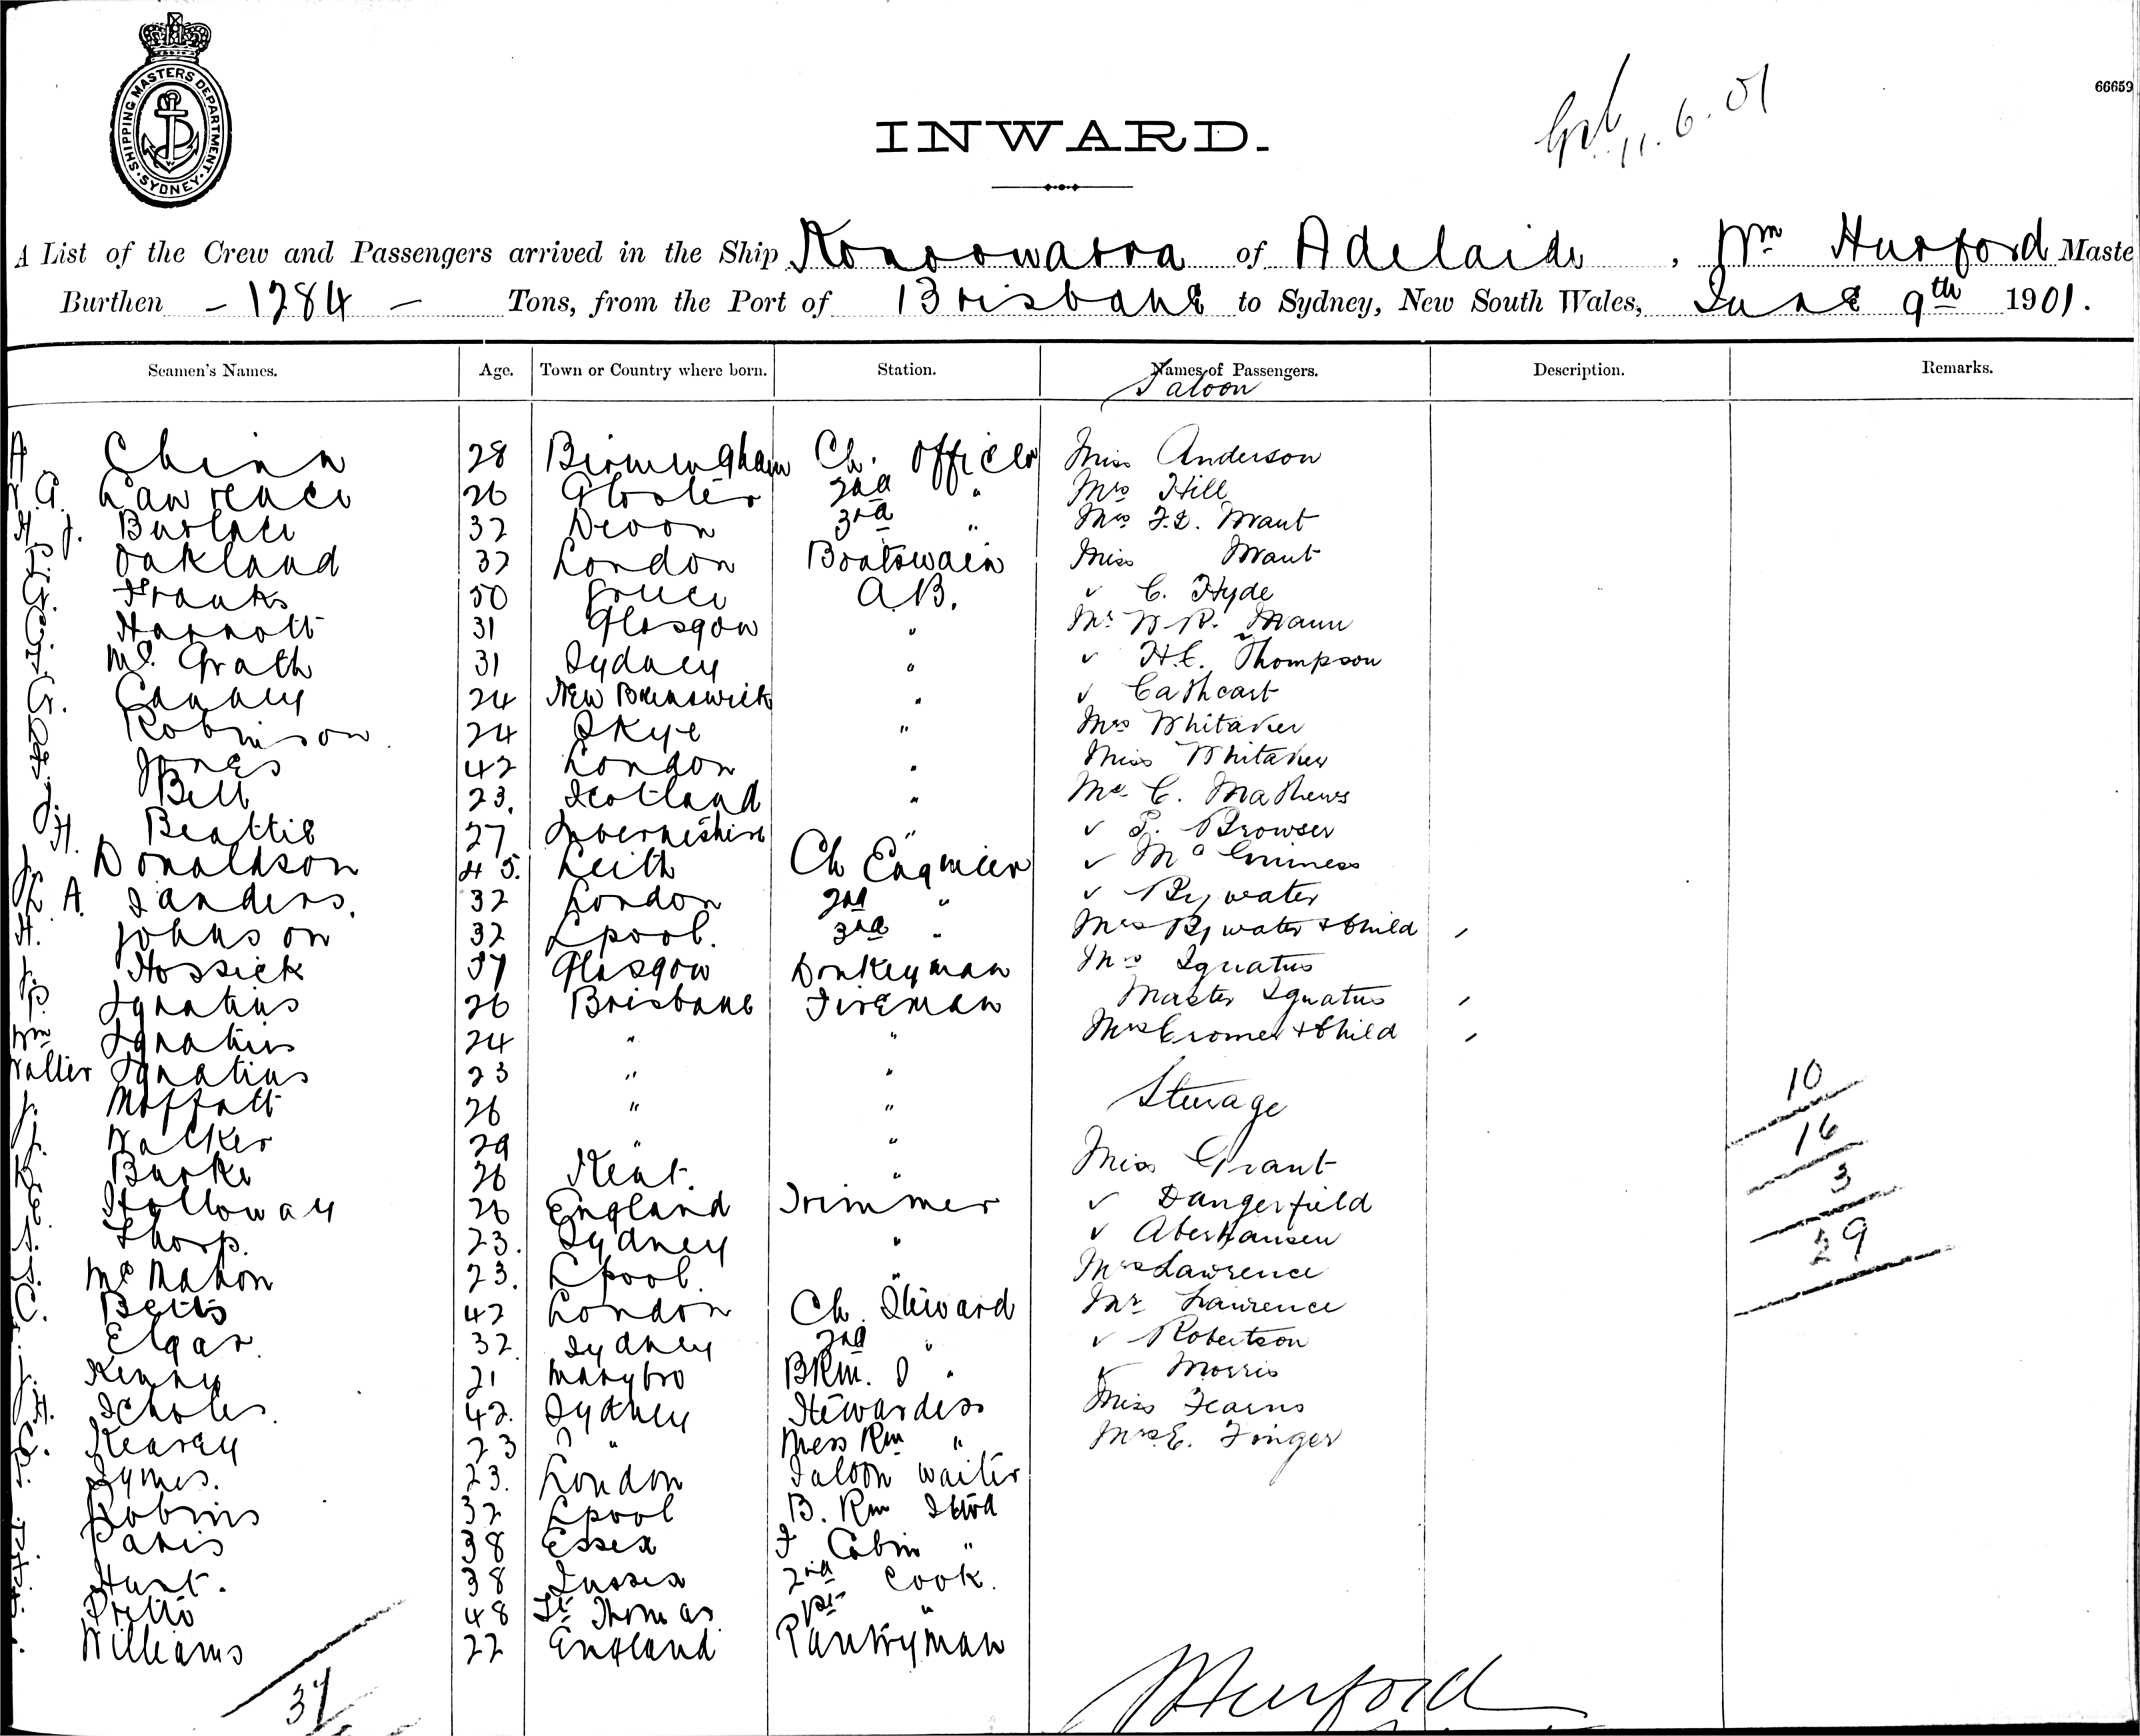 SHIPPING MASTERS DEPARTMENT · SYDNEY ·
66659
11.6.01
INWARD.
A List of the Crew and Passengers arrived in the Ship Konoowarra of Adelaide, Wm Hurford Maste
Burthen - 1284 - Tons, from the Port of Brisbane to Sydney, New South Wales, June 9th 1901.
Seamen's Names. Age. Town or Country where born. Station. Names of Passengers. Description. Remarks.
Saloon
A Chinn 28 Birmingham Ch. Officer Miss Anderson
G. Lawrence 26 Gloster 2nd " Mrs Hill
H J. Burlace 32 Devon 3rd " Mrs F.L. Want
Oakland 32 London Boatswain Miss Want
Franks 50 Greece A.B. ✓ C. Hyde
Harrott 31 Glasgow " Mr W R. Mann
Mc Grath 31 Sydney " ✓ H.C. Thompson
G. Canney 24 New Brunswick " ✓ Cathcart
Robinson 24 Skye " Mrs Whitaker
Jones 42 London " Miss Whitaker
Bell 23. Scotland " Mr C. Mathews
H. Beattie 27 Inverneshire " ✓ Browser
J. Donaldson 45. Leith Ch Engineer ✓ McGuiness
A. Sanders. 32 London 2nd " ✓ Bywater
H. Johnson 32 Lpool. 3rd " Mrs Bywater & Child
J. Hossick 37 Glasgow Donkeyman Mrs Ignatus
P. Ignatius 26 Brisbane Fireman Master Ignatus
Wm Ignatius 24 " " Mrs Cromer & Child
Walter Ignatius 23 " "
J. Moffatt 26 " " Sterage 10
J. Walker 29 " " 16
Burke 26 Kent. " Miss Grant 3
E. Holloway 26 England Trimmer ✓ Dangerfield
A. Thorp. 23. Sydney " ✓ Aberhansen 29
Mc Mahon 23. Lpool. " Mrs Lawrence
C. Betts 42 London Ch. Steward Mr Lawrence
Elgar 32. Sydney 2nd " ✓ Robertson
J. Kenny 21 Marybro BRm. S " ✓ Morris
H. Scholes 42. Sydney Stewardess Miss Fearns
Kearey 23 " Mess Rm " Mrs E. Finger
Symes. 23. London Saloon waiter
Robins 32 Lpool B. Rm Stwd
Paris 38 Essex F Cabin "
Hunt. 38 Sussex 2nd Cook.
48 St Thomas 1st "
Williams 22 England Pantryman
37
WHurford